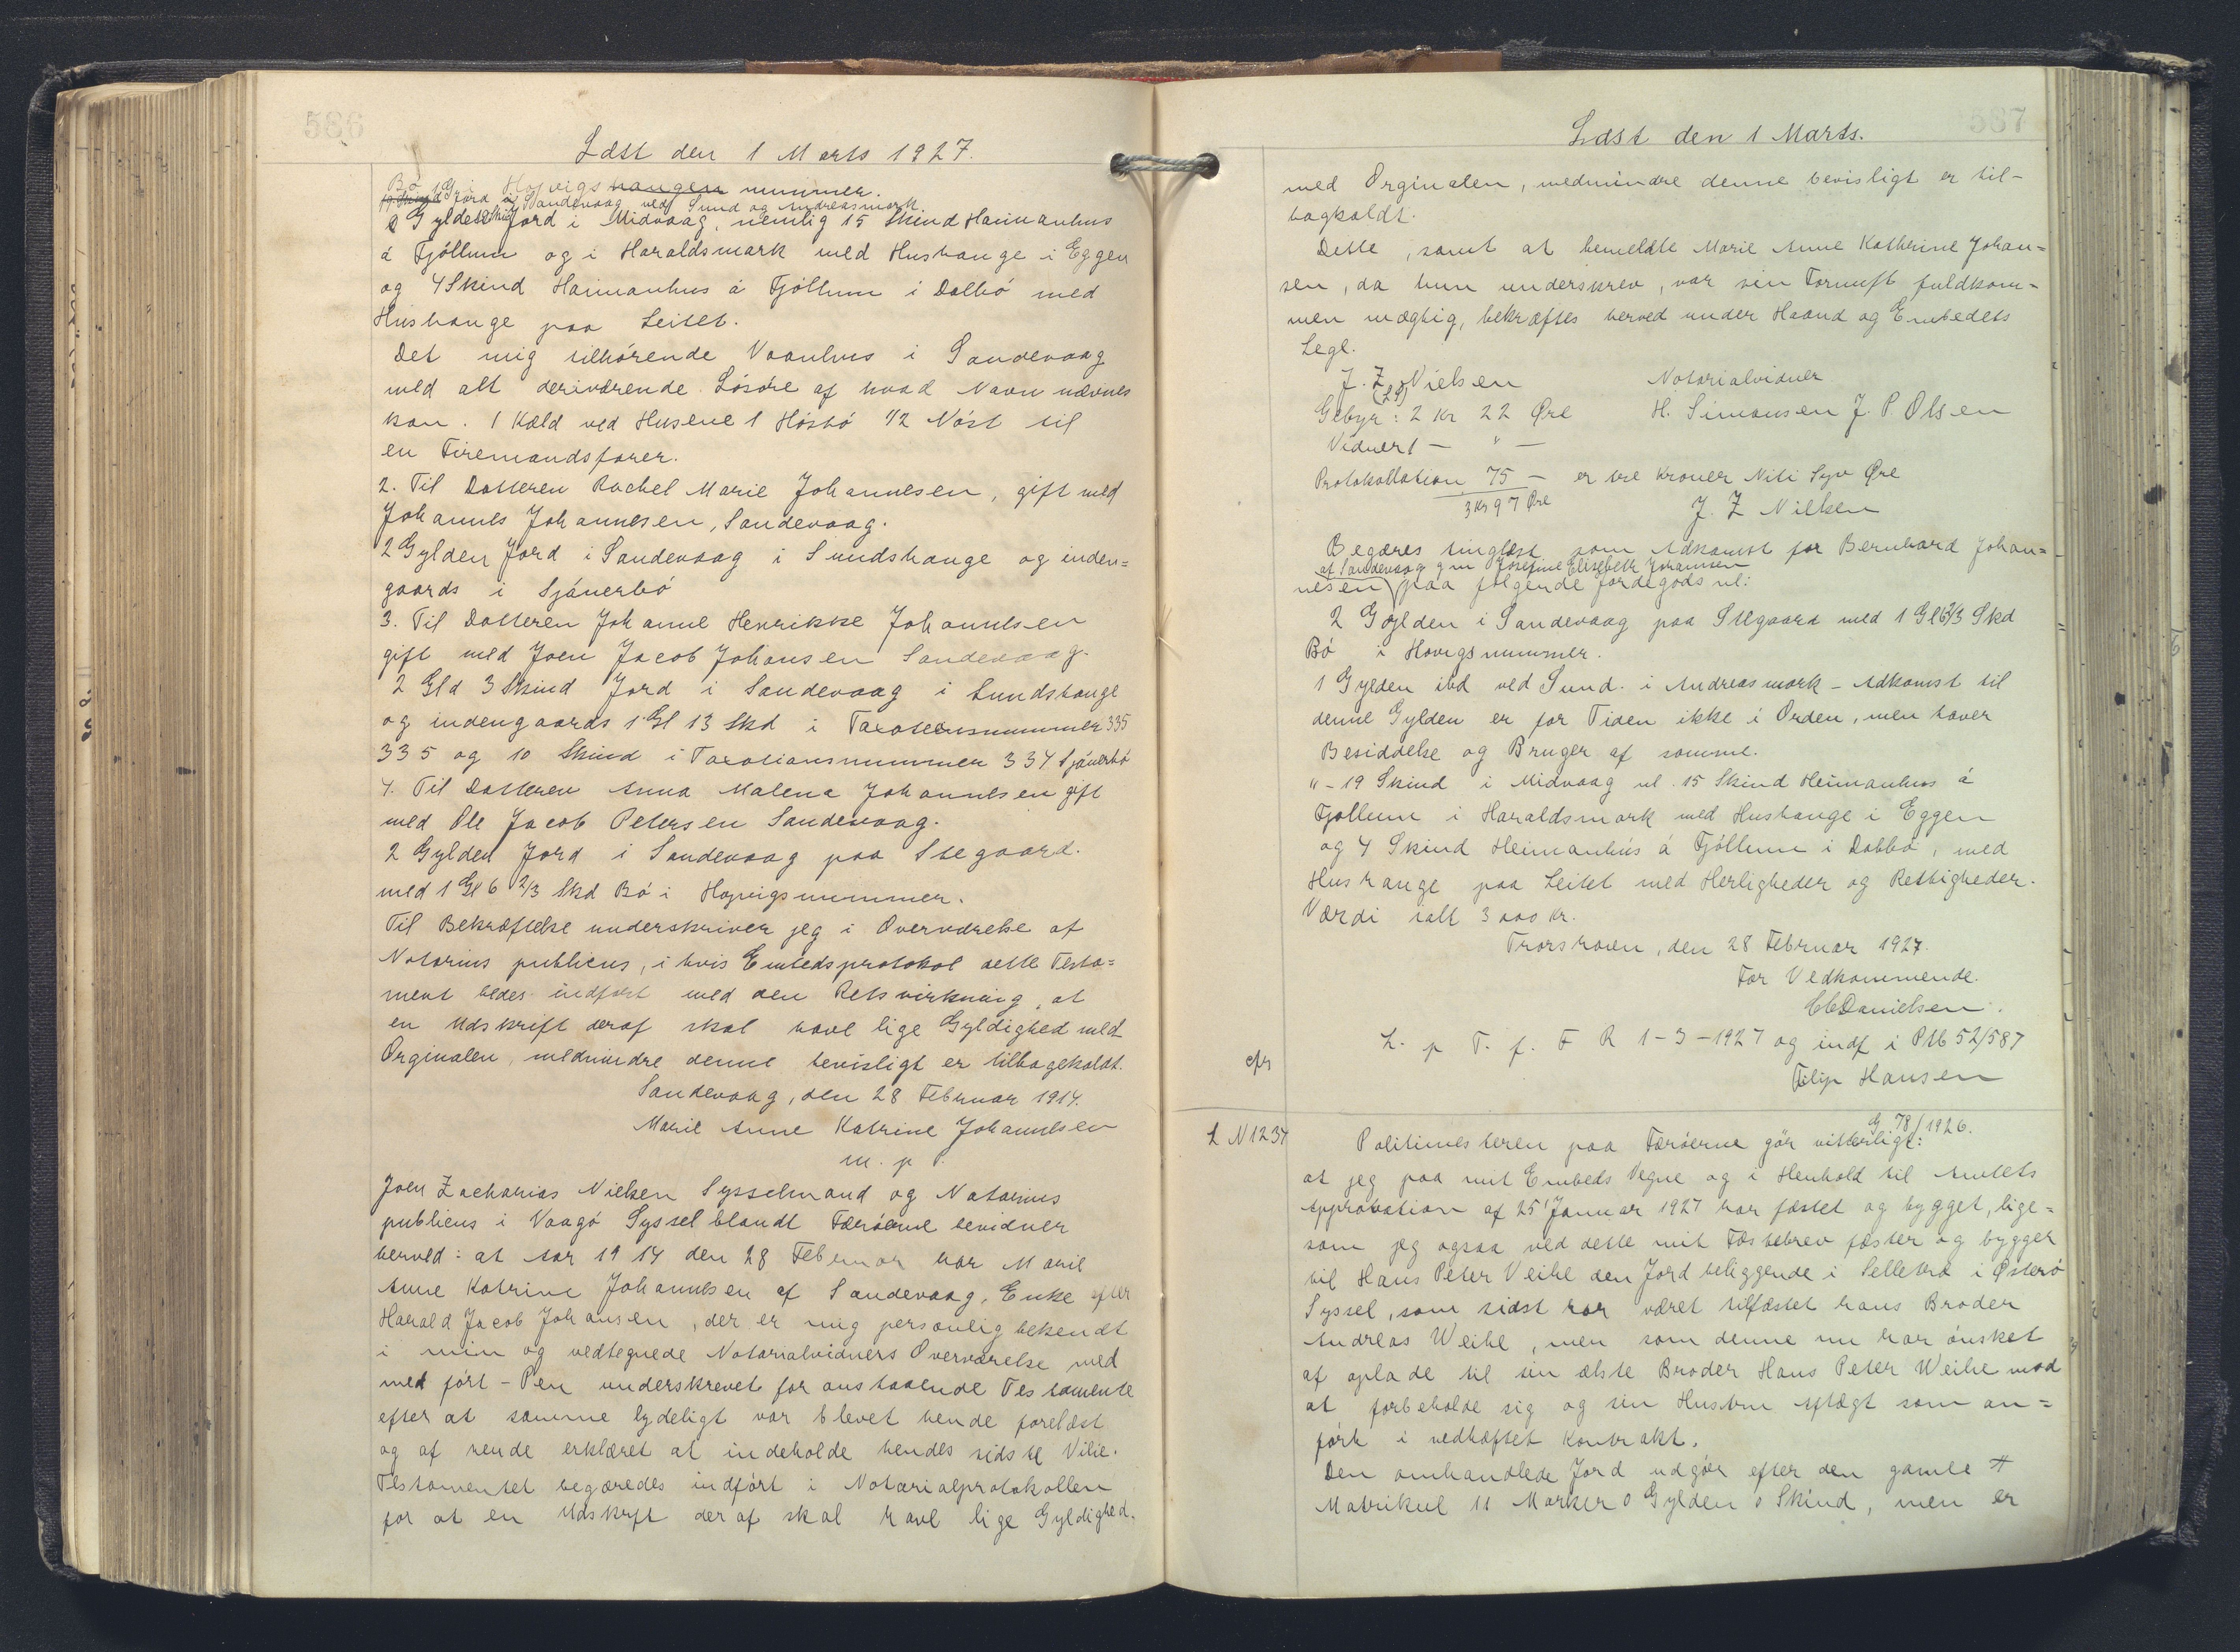 586
Læst den 1 Marts 1927.
Bø i Hojvigs hangen nummer.
1 G Jord i Sandevaag ved Sund og Andreasmark.
0 Gylden 19 Skind Jord i Midvaag, nemlig 15 Skind Heimanhus
á Fjöllum og i Haraldsmark med Hushange i Eggen
og 4 Skind Heimanhus á Fjöllum i Dalbö med
Hushange paa Leitet.
Det mig tilhörende Vaanhus i Sandevaag
med alt deriværende Lösöre af hvad Navn nævnes
kan. 1 Kæld ved Husene 1 Hösbö 1/2 Nöst til
en Firemandsfarer.
2. Til Datteren Rachel Marie Johannesen, gift med
Johannes Johannesen, Sandevaag.
2 Gylden Jord i Sandevaag i Sundshange og inden=
gaards i Sjánerbö
3. Til Datteren Johanne Henrikke Johannesen
gift med Joen Jacob Johansen Sandevaag.
2 Gld 3 Skind Jord i Sandevaag i Sundshange
og indengaards 1 Gl 13 Skd i Taxationsnummer 335
335 og 10 Skind i Taxationsnummer 334 Sjánerbö
4. Til Datteren Anna Malena Johannesen gift
med Ole Jacob Petersen Sandevaag.
2 Gylden Jord i Sandevaag paa Stegaard.
med 1 Gl 6 2/3 Skd Bö i Hojvigsnummer.
Til Bekræftelse underskriver jeg i Overværelse af
Notarius publicus, i hvis Embedsprotokol dette Testa=
ment bedes indfört med den Retsvirkning, at
en Udskrift deraf skal have lige Gyldighed med
Orginalen, medmindre denne bevisligt er tilbagekaldt.
Sandevaag, den 28 Februar 1914.
Marie Anne Katrine Johannesen
m. p.
Joen Zacharias Nielsen Sysselmand og Notarius
publicus i Vaagö Syssel blandt Færöerne bevidner
herved: at Aar 1914 den 28 Februar har Marie
Anne Katrine Johannesen af Sandevaag, Enke efter
Harald Jacob Johansen, der er mig personlig bekendt
i min og vedtegnede Notarialvidners Overværelse med
med fört-Pen underskrevet foranstaaende Testamente
efter at samme lydeligt var blevet hende forelæst
og af hende erklæret at indeholde hendes sidste Vilie.
Testamentet begæredes indfört i Notarialprotokollen
for at en Udskrift deraf skal have lige Gyldighed.
587
Læst den 1 Marts.
med Orginalen, medmindre denne bevisligt er til-
bagkaldt.
Dette, samt at bemeldte Marie Anne Kathrine Johan=
sen, da hun underskrev, var sin Fornuft fuldkom=
men mægtig, bekræftes herved under Haand og Embedets
Segl.
J. Z. Nielsen Notarialvidner
(LS)
Gebyr: 2 Kr 22 Øre H. Simonsen J. P. Olsen
Vidner 1 — " —
Protokollation 75 — er tre Kroner Niti Syv Øre
3 Kr 97 Øre J. Z Nielsen
Begæres tinglæst som Adkomst for Bernhard Johan=
af Sandevaag g m Josefine Elisebeth Johannsen
nesen paa følgende Jordegods nl:
2 Gylden i Sandevaag paa Stegaard med 1 Gl 6 2/3 Skd
Bö i Hovigsnummer.
1 Gylden ibd ved Sund. i Andreasmark - Adkomst til
denne Gylden er for Tiden ikke i Orden, men haver
Besiddelse og Bruger af samme.
" - 19 Skind i Midvaag nl. 15 Skind Heimanhus á
Fjøllum i Haraldsmark med Hushange i Eggen
og 4 Skind Heimanhús á Fjöllum i Dalbö, med
Hushange paa Leitet med Herligheder og Rettigheder.
Værdi ialt 3000 Kr.
Trorshavn, den 28 Februar 1927.
For Vedkommende.
Danielsen.
L. p T. f. F R 1-3-1927 og indf i Ptb 52/587
cfr
Filip Hansen
L N 1234
G. 78/1926.
Politimesteren paa Færöerne gör vitterligt:
at jeg paa mit Embeds Vegne og i Henhold til Amtets
Approbation af 25' Januar 1927 har fæstet og bygget, lige=
som jeg ogsaa ved dette mit Fæstebrev fæster og bygger
til Hans Peter Veihe den Jord beliggende i Selletræ i Østerö
Syssel, som sidst har været tilfæstet hans Broder
Andreas Weihe, men som denne nu har önsket
af oplade til sin ælste Broder Hans Peter Weihe mod
at forbeholde sig og sin Hustru Aftægt som an=
fört i vedhæftet Kontrakt.
Den omhandlede Jord udgör efter den gamle
Matrikul 11 Marker 0 Gylden 0 Skind, men er